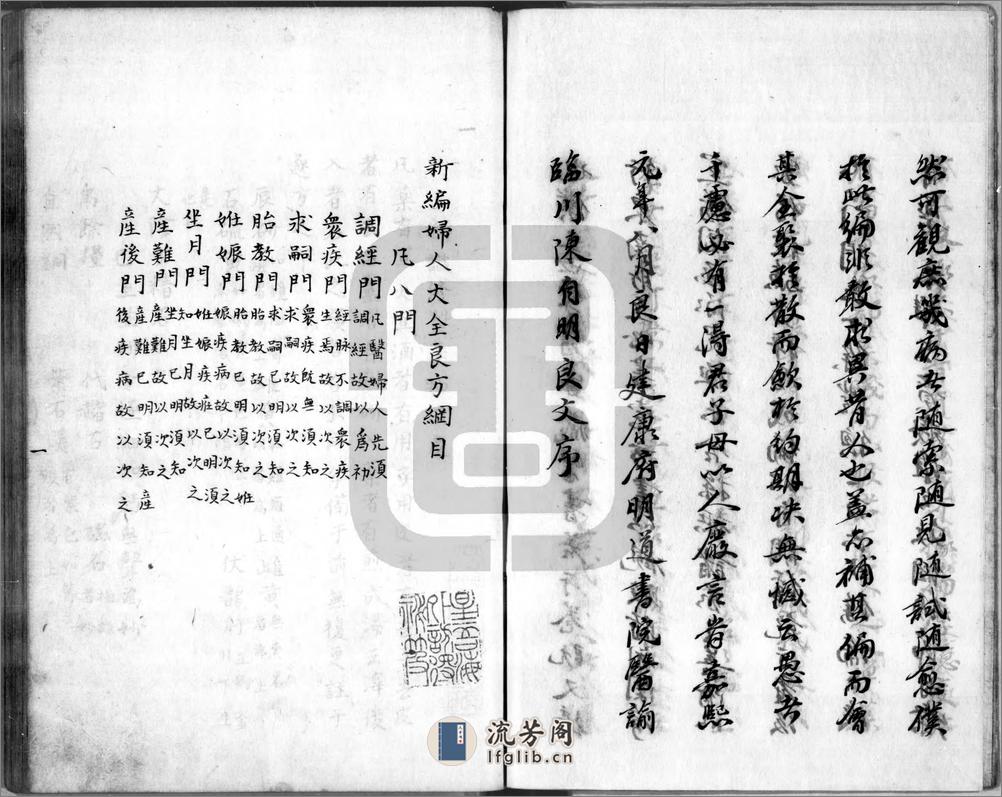 然可觀庶幾病者随索随見随試随愈樸
於此編非敢求異昔人也蓋亦補其偏而會
其全聚於散而斂於約期決無憾云愚者
千慮必有一得君子毋以人廢言旹嘉熙
元年八月良日建康府明道書院醫諭
臨川陳自明良文序
新編婦人大全良方綱目
凡八門
調經門 凡醫婦人先須
調經故以爲初
衆疾門 經脉不調衆疾
生焉故以次之
求嗣門 衆疾既無須知
求嗣故以次之
胎教門 求嗣已明須知
胎教故以次之
姙娠門 胎教已明須知姙
娠疾病故以次之
坐月門 姙娠疾症已明須
知坐月故以次之
産難門 坐月已明須知
産難故以次之
産後門 産難已明須知産
後疾病故以次之
一
流芳阁
lfglib.cn